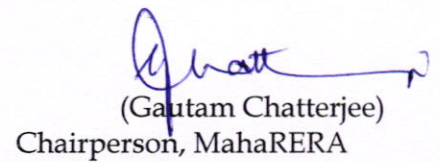 (Gautam Chatterjee)
Chairperson, MahaRERA